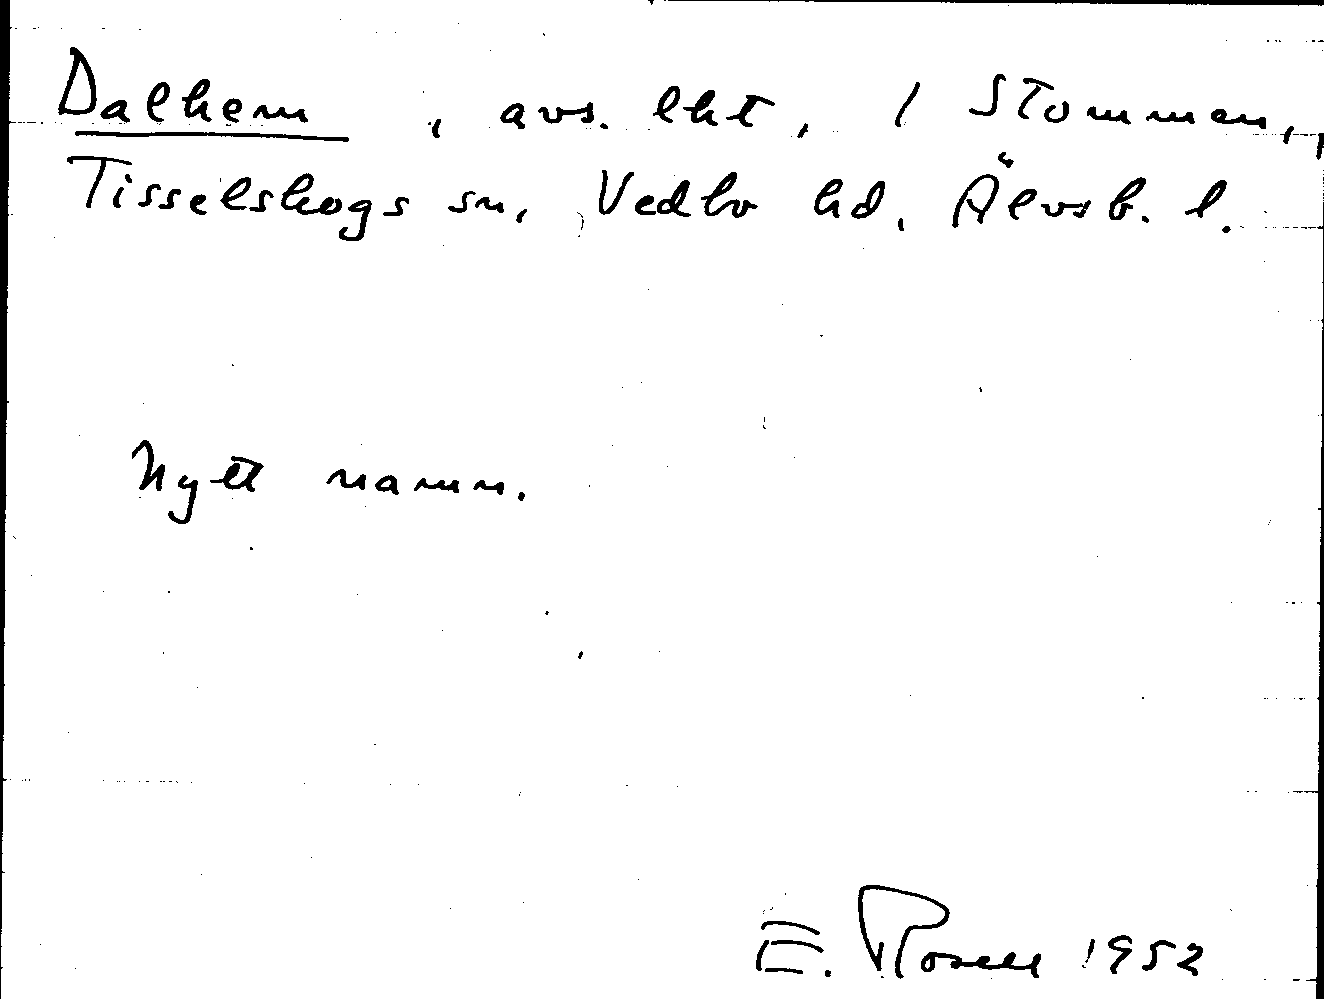 Dalhem, avs. lht, 1 Stommen,
Tisselskogs sn, Vedbo hd, Älvsb. l.
Nytt namn.
E. Rosell 1952